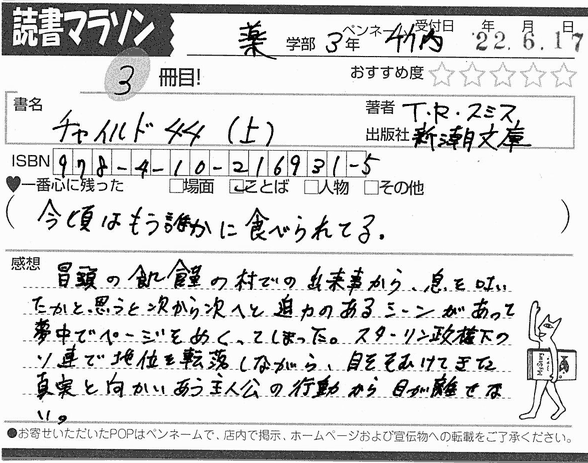 読書マラソン
薬 学部 3年 ペンネーム 竹内 受付日 年 月 日 22.6.17
3 冊目! おすすめ度 ☆☆☆☆☆
書名 チャイルド44 (上)
著者 T.R.スミス
出版社 新潮文庫
ISBN 978-4-10-216931-5
♥一番心に残った □場面 □ことば □人物 □その他
(今頃はもう誰かに食べられてる。)
感想
冒頭の飢饉の村での出来事から、息を吐い
たかと思うと次から次へと迫力のあるシーンがあって
夢中でページをめくってしまった。スターリン政権下の
ソ連で地位を転落しながら、目をそむけてきた
真実と向かいあう主人公の行動から目が離せな
い。
●お寄せいただいたPOPはペンネームで、店内で掲示、ホームページおよび宣伝物への転載をご了承ください。